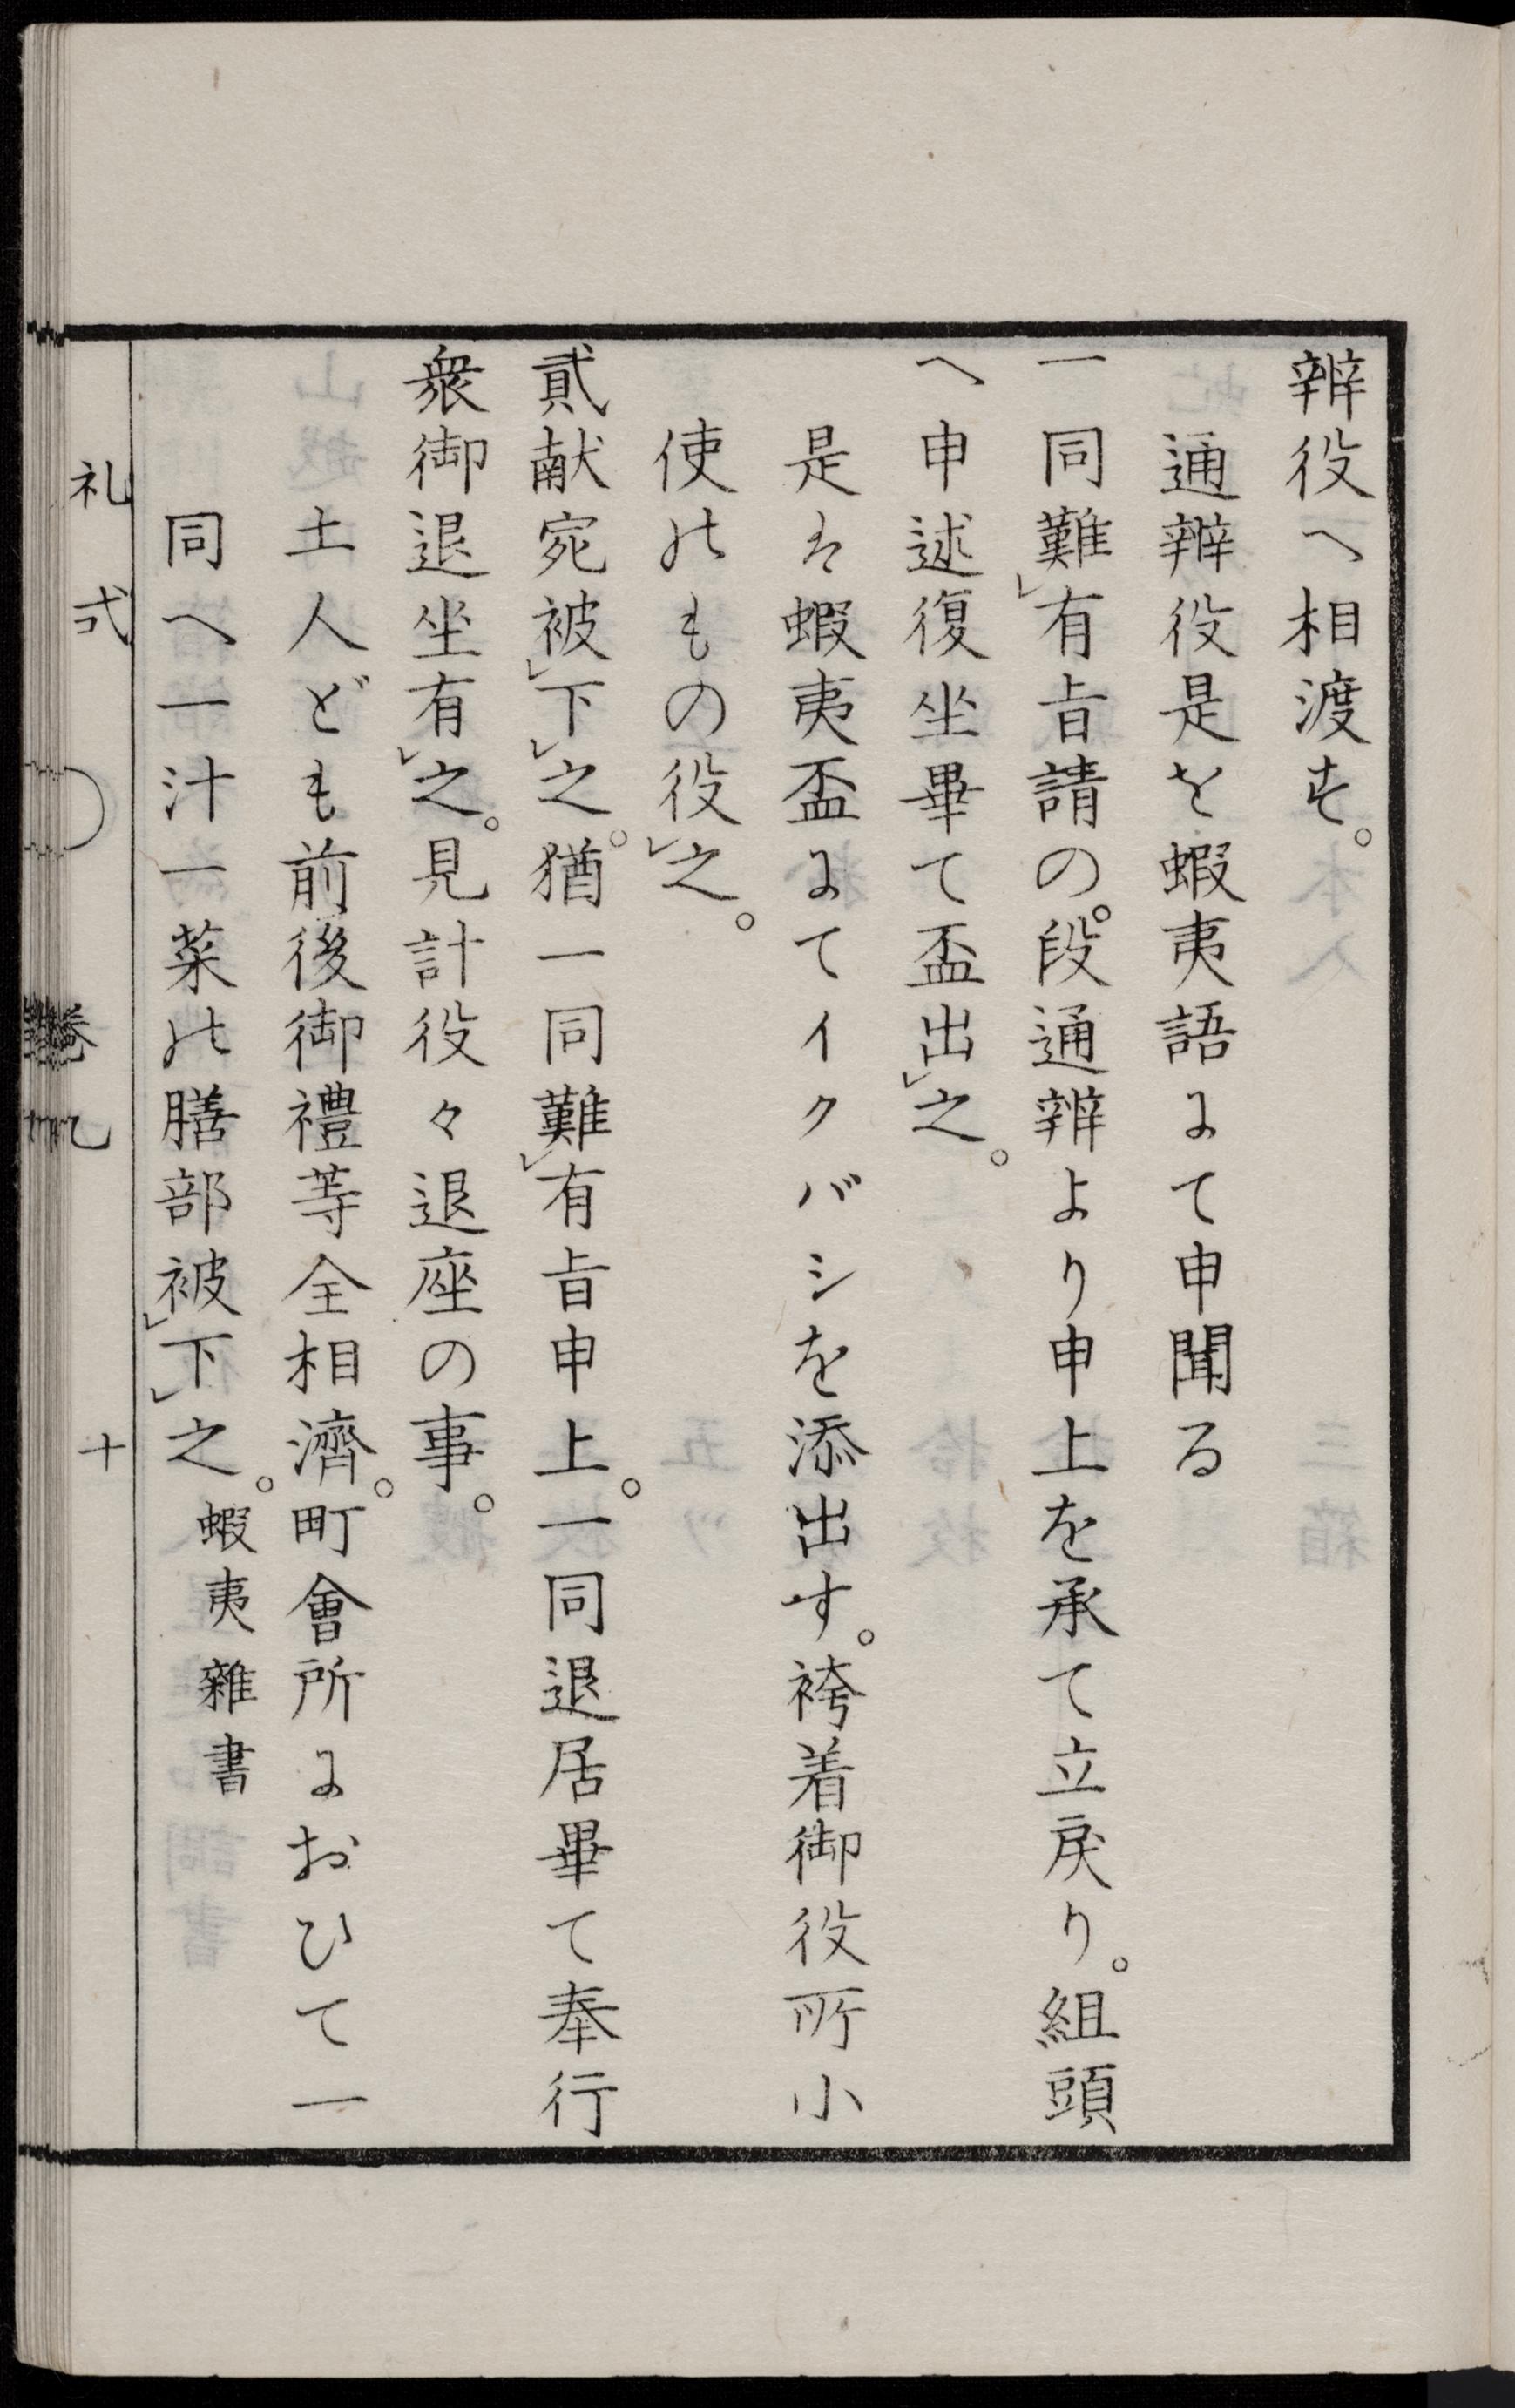 辨役へ相渡す。
通辨役是を蝦夷語にて申聞る
一同難レ有旨請の。段通辨より申上を承て立戻り。組頭
へ申述復坐畢て盃出レ之。
是は蝦夷盃にてイクバシを添出す。袴着御役所小
使のもの役レ之。
貳献宛被レ下レ之。猶一同難レ有旨申上。一同退居畢て奉行
衆御退坐有レ之。見計役々退座の事。
土人ども前後御禮等全相濟。町會所におひて一
同へ一汁一菜の膳部被レ下レ之。蝦夷雜書
礼式 十